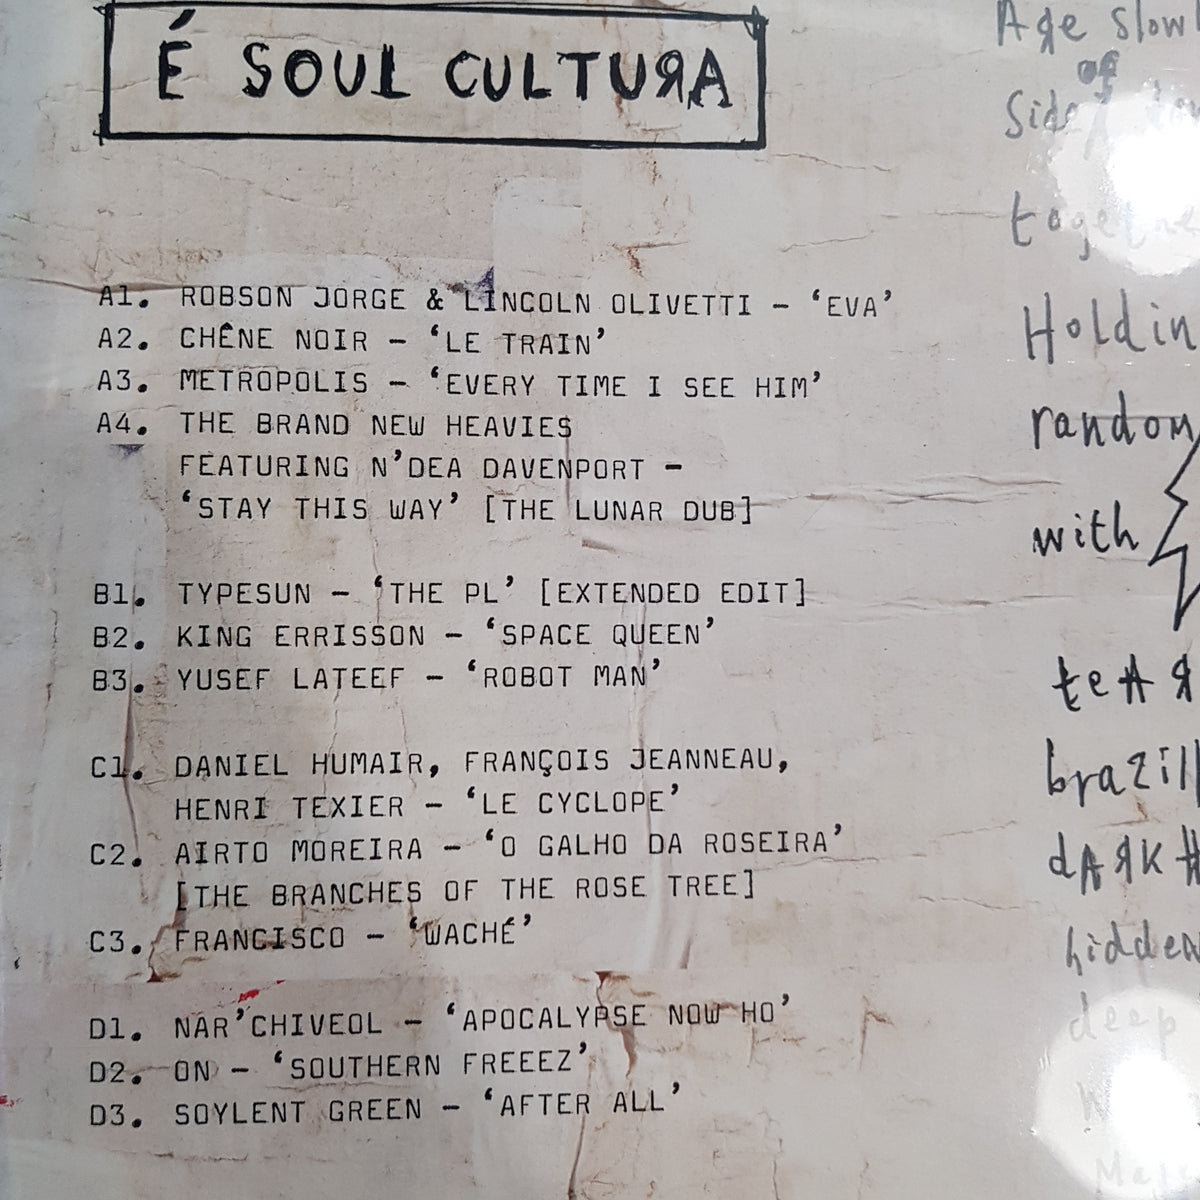 É SOUL CULTURA
A1. ROBSON JORGE & LINCOLN OLIVETTI – ‘EVA’
A2. CHÊNE NOIR – ‘LE TRAIN’
A3. METROPOLIS – ‘EVERY TIME I SEE HIM’
A4. THE BRAND NEW HEAVIES
FEATURING N’DEA DAVENPORT –
‘STAY THIS WAY’ [THE LUNAR DUB]
B1. TYPESUN – ‘THE PL’ [EXTENDED EDIT]
B2. KING ERRISSON – ‘SPACE QUEEN’
B3. YUSEF LATEEF – ‘ROBOT MAN’
C1. DANIEL HUMAIR, FRANÇOIS JEANNEAU,
HENRI TEXIER – ‘LE CYCLOPE’
C2. AIRTO MOREIRA – ‘O GALHO DA ROSEIRA’
[THE BRANCHES OF THE ROSE TREE]
C3. FRANCISCO – ‘WACHÉ’
D1. NAR’CHIVEOL – ‘APOCALYPSE NOW HO’
D2. ON – ‘SOUTHERN FREEEZ’
D3. SOYLENT GREEN – ‘AFTER ALL’
Age slow
of
Side
Holdin
random
with
teAR
brazil
dARK
hidden
deep